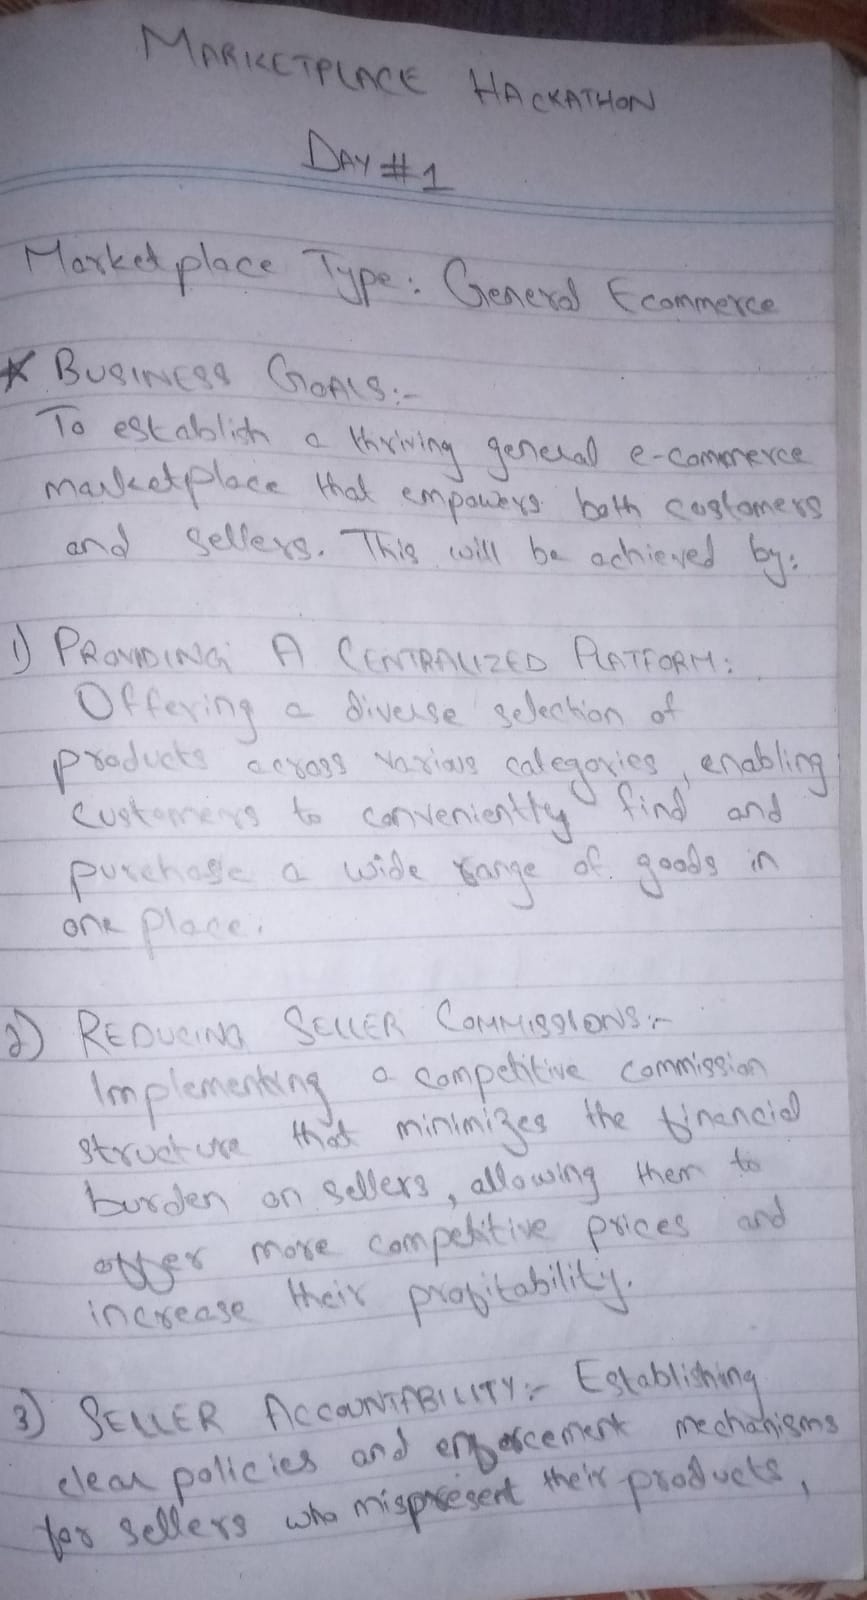 MARKETPLACE HACKATHON
DAY #1
Marketplace Type: General Ecommerce
* BUSINESS GOALS:-
To establish a thriving general e-commerce
marketplace that empowers both customers
and sellers. This will be achieved by:
1) PROVIDING A CENTRALIZED PLATFORM:
Offering a diverse selection of
products across various categories, enabling
customers to conveniently find and
purchase a wide range of goods in
one place.
2) REDUCING SELLER COMMISSIONS:-
Implementing a competitive commission
structure that minimizes the financial
burden on sellers, allowing them to
offer more competitive prices and
increase their profitability.
3) SELLER ACCOUNTABILITY:- Establishing
clear policies and enforcement mechanisms
for sellers who mispresent their products,